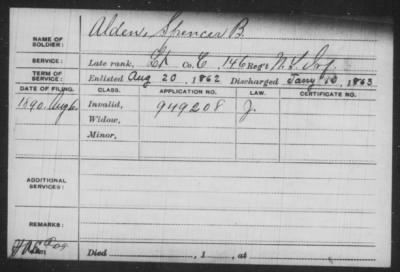 NAME OF SOLDIER: Alden, Spencer B.
SERVICE: Late rank, Lt Co. C, 146 Reg't N.Y. Inf.
TERM OF SERVICE: Enlisted Aug 20, 1862 Discharged Jany 10, 1863
DATE OF FILING. CLASS. APPLICATION NO. LAW. CERTIFICATE NO.
1890, Aug 6 Invalid, 949208 J.
Widow,
Minor,
ADDITIONAL SERVICES:
REMARKS:
Died , 1 , at